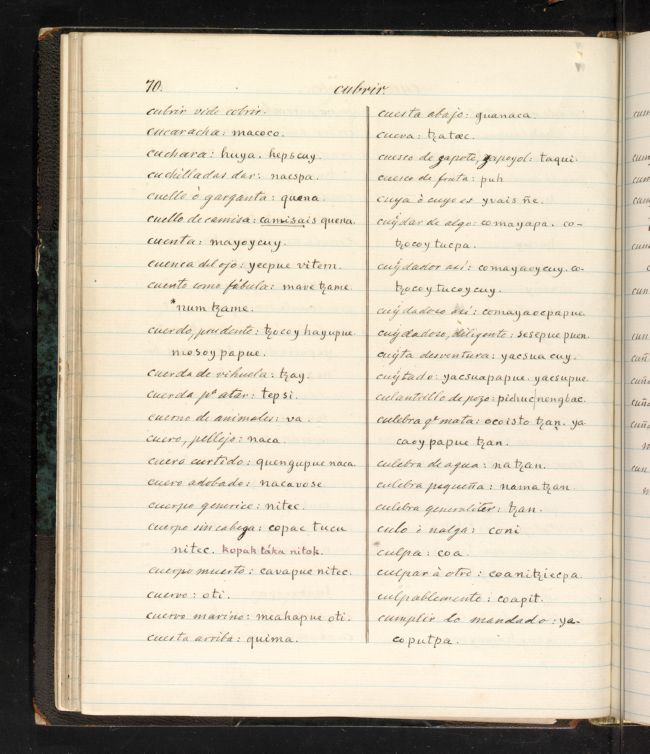 70.
cubrir.
cubrir vide cobrir.
cucaracha: macoco.
cuchara: huya. hepscuy.
cuchilladas dar: nacspa.
cuello ò garganta: quena.
cuello de camisa: camisais quena.
cuenta: mayoycuy.
cuenca del ojo: yecpue vitem.
cuento como fábula: mave tzame.
*num tzame.
cuerdo, prudente: tzocoy hayupue.
mosoy papue.
cuerda de vihuela: tzay.
cuerda pª atar: tepsi.
cuerno de animales: va.
cuero, pellejo: naca.
cuero curtido: quengupue naca.
cuero adobado: nacavose.
cuerpo generice: nitec.
cuerpo sin cabeza: copac tucu
nitec. kopak táka nitok.
cuerpo muerto: cavapue nitec.
cuervo: oti.
cuervo marino: meahapue oti.
cuesta arriba: quima.
cuesta abajo: quanaca.
cueva: tzatæc.
cuesco de zapote, zapoyol: taqui.
cuesco de fruta: puh
cuya ò cuyo es yvais ñe.
cuÿdar de algo: comayapa. co-
tzocoy tucpa.
cuÿdador así: comayaoycuy. co-
tzocoy tucoycuy.
cuÿdadoso así: comayaocpapue.
cuÿdadoso, diligente: sesepue puen.
cuÿta desventura: yacsua cuy.
cuÿtado: yacsuapapue. yacsupue.
culantrillo de pozo: pichuc nengbac.
culebra qᵉ mata: ocoisto tzan. ya
caoy papue tzan.
culebra de agua: na tzan.
culebra pequeña: nama tzan.
culebra generaliter: tzan.
culo ò nalga: coni
culpa: coa.
culpar à otro: coanitziecpa.
culpablemente: coapit.
cumplir lo mandado: ya-
coputpa.